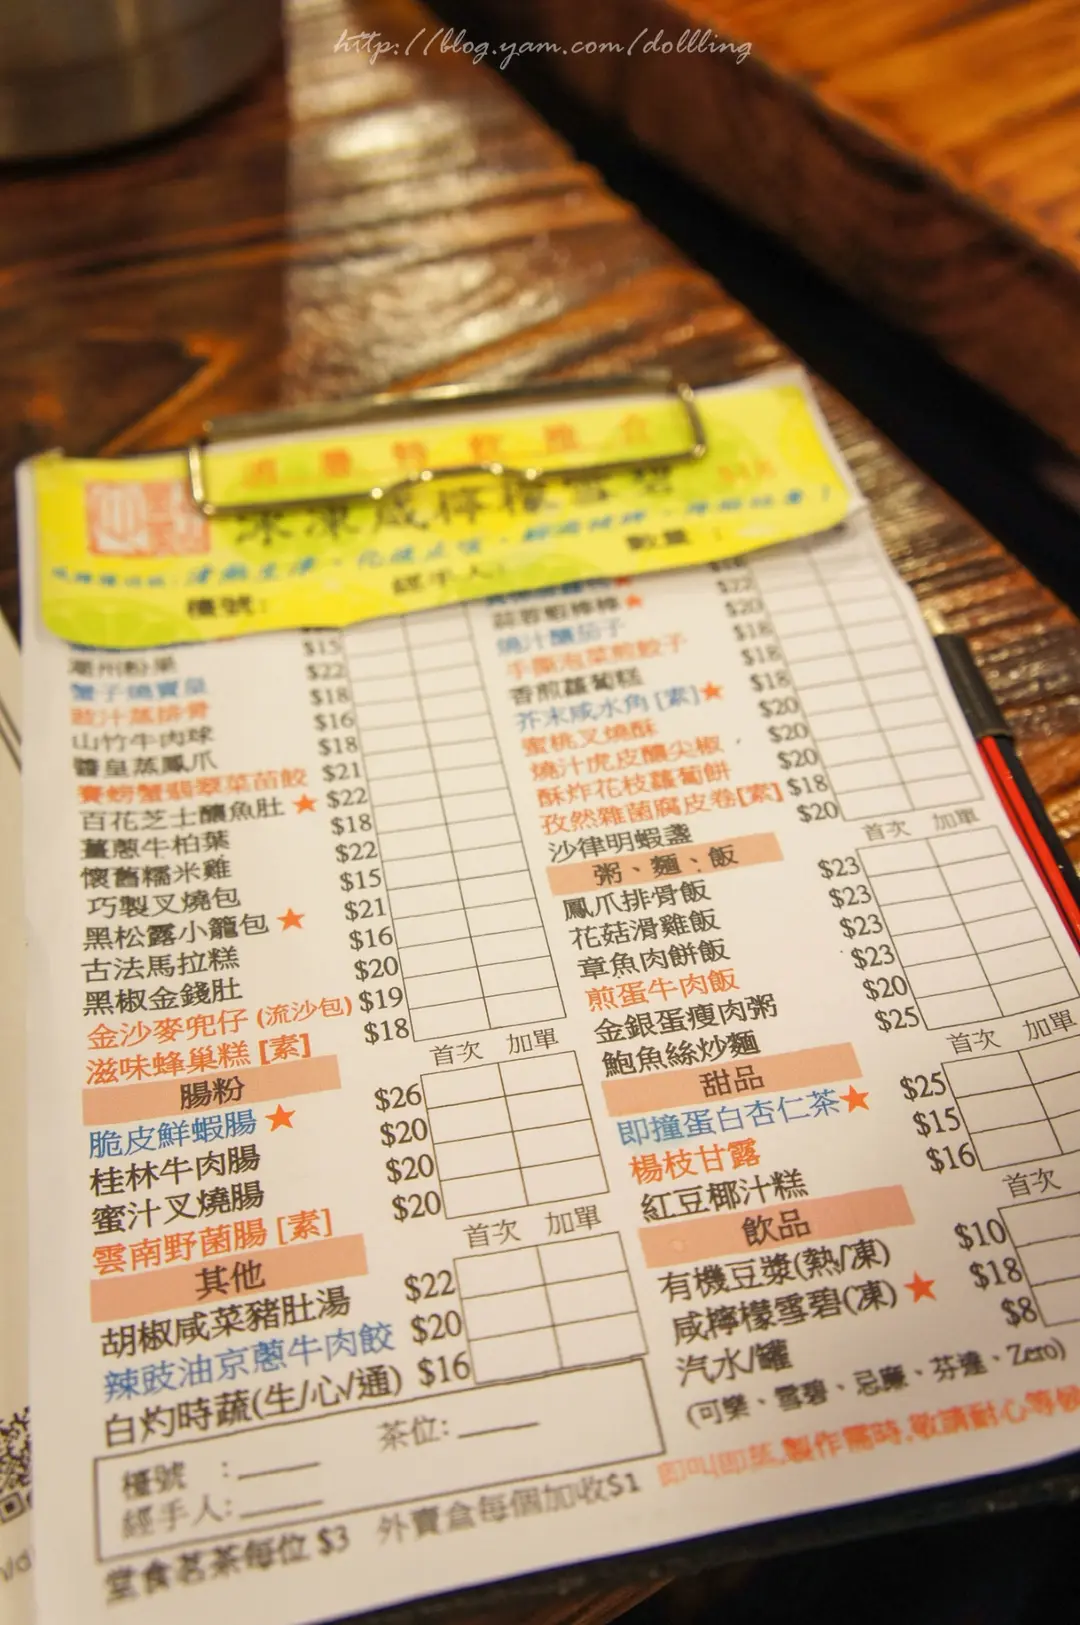 http://blog.yam.com/dollling
冰凍咸檸檬雪碧
數量：
經手人:
檯號:
潮州粉果
蟹子燒賣皇
豉汁蒸排骨
山竹牛肉球
醬皇蒸鳳爪
賽螃蟹翡翠菜苗餃
百花芝士釀魚肚 ★
薑蔥牛柏葉
懷舊糯米雞
巧製叉燒包
黑松露小籠包 ★
古法馬拉糕
黑椒金錢肚
金沙麥兜仔 (流沙包)
滋味蜂巢糕 [素]
$15
$22
$18
$16
$18
$21
$22
$18
$22
$15
$21
$16
$20
$19
$18
腸粉
首次 加單
脆皮鮮蝦腸 ★ $26
桂林牛肉腸 $20
蜜汁叉燒腸 $20
雲南野菌腸 [素] $20
其他
首次 加單
胡椒咸菜豬肚湯 $22
辣豉油京蔥牛肉餃 $20
白灼時蔬(生/心/通) $16
茶位:
檯號 :
經手人:
堂食茗茶每位 $3 外賣盒每個加收$1
蒜蓉蝦棒棒★
燒汁釀茄子
手剁泡菜煎餃子
香煎蘿蔔糕
芥末咸水角 [素]★
蜜桃叉燒酥
燒汁虎皮釀尖椒
酥炸花枝蘿蔔餅
孜然雜菌腐皮卷[素]
沙律明蝦盞
$22
$20
$18
$18
$18
$20
$20
$20
$18
$20
粥、麵、飯
首次 加單
鳳爪排骨飯 $23
花菇滑雞飯 $23
章魚肉餅飯 $23
煎蛋牛肉飯 $23
金銀蛋瘦肉粥 $20
鮑魚絲炒麵 $25
甜品
首次 加單
即撞蛋白杏仁茶★ $25
楊枝甘露 $15
紅豆椰汁糕 $16
飲品
首次
有機豆漿(熱/凍) $10
咸檸檬雪碧(凍) ★ $18
汽水/罐 $8
(可樂、雪碧、忌廉、芬達、Zero)
即叫即蒸,製作需時,敬請耐心等候